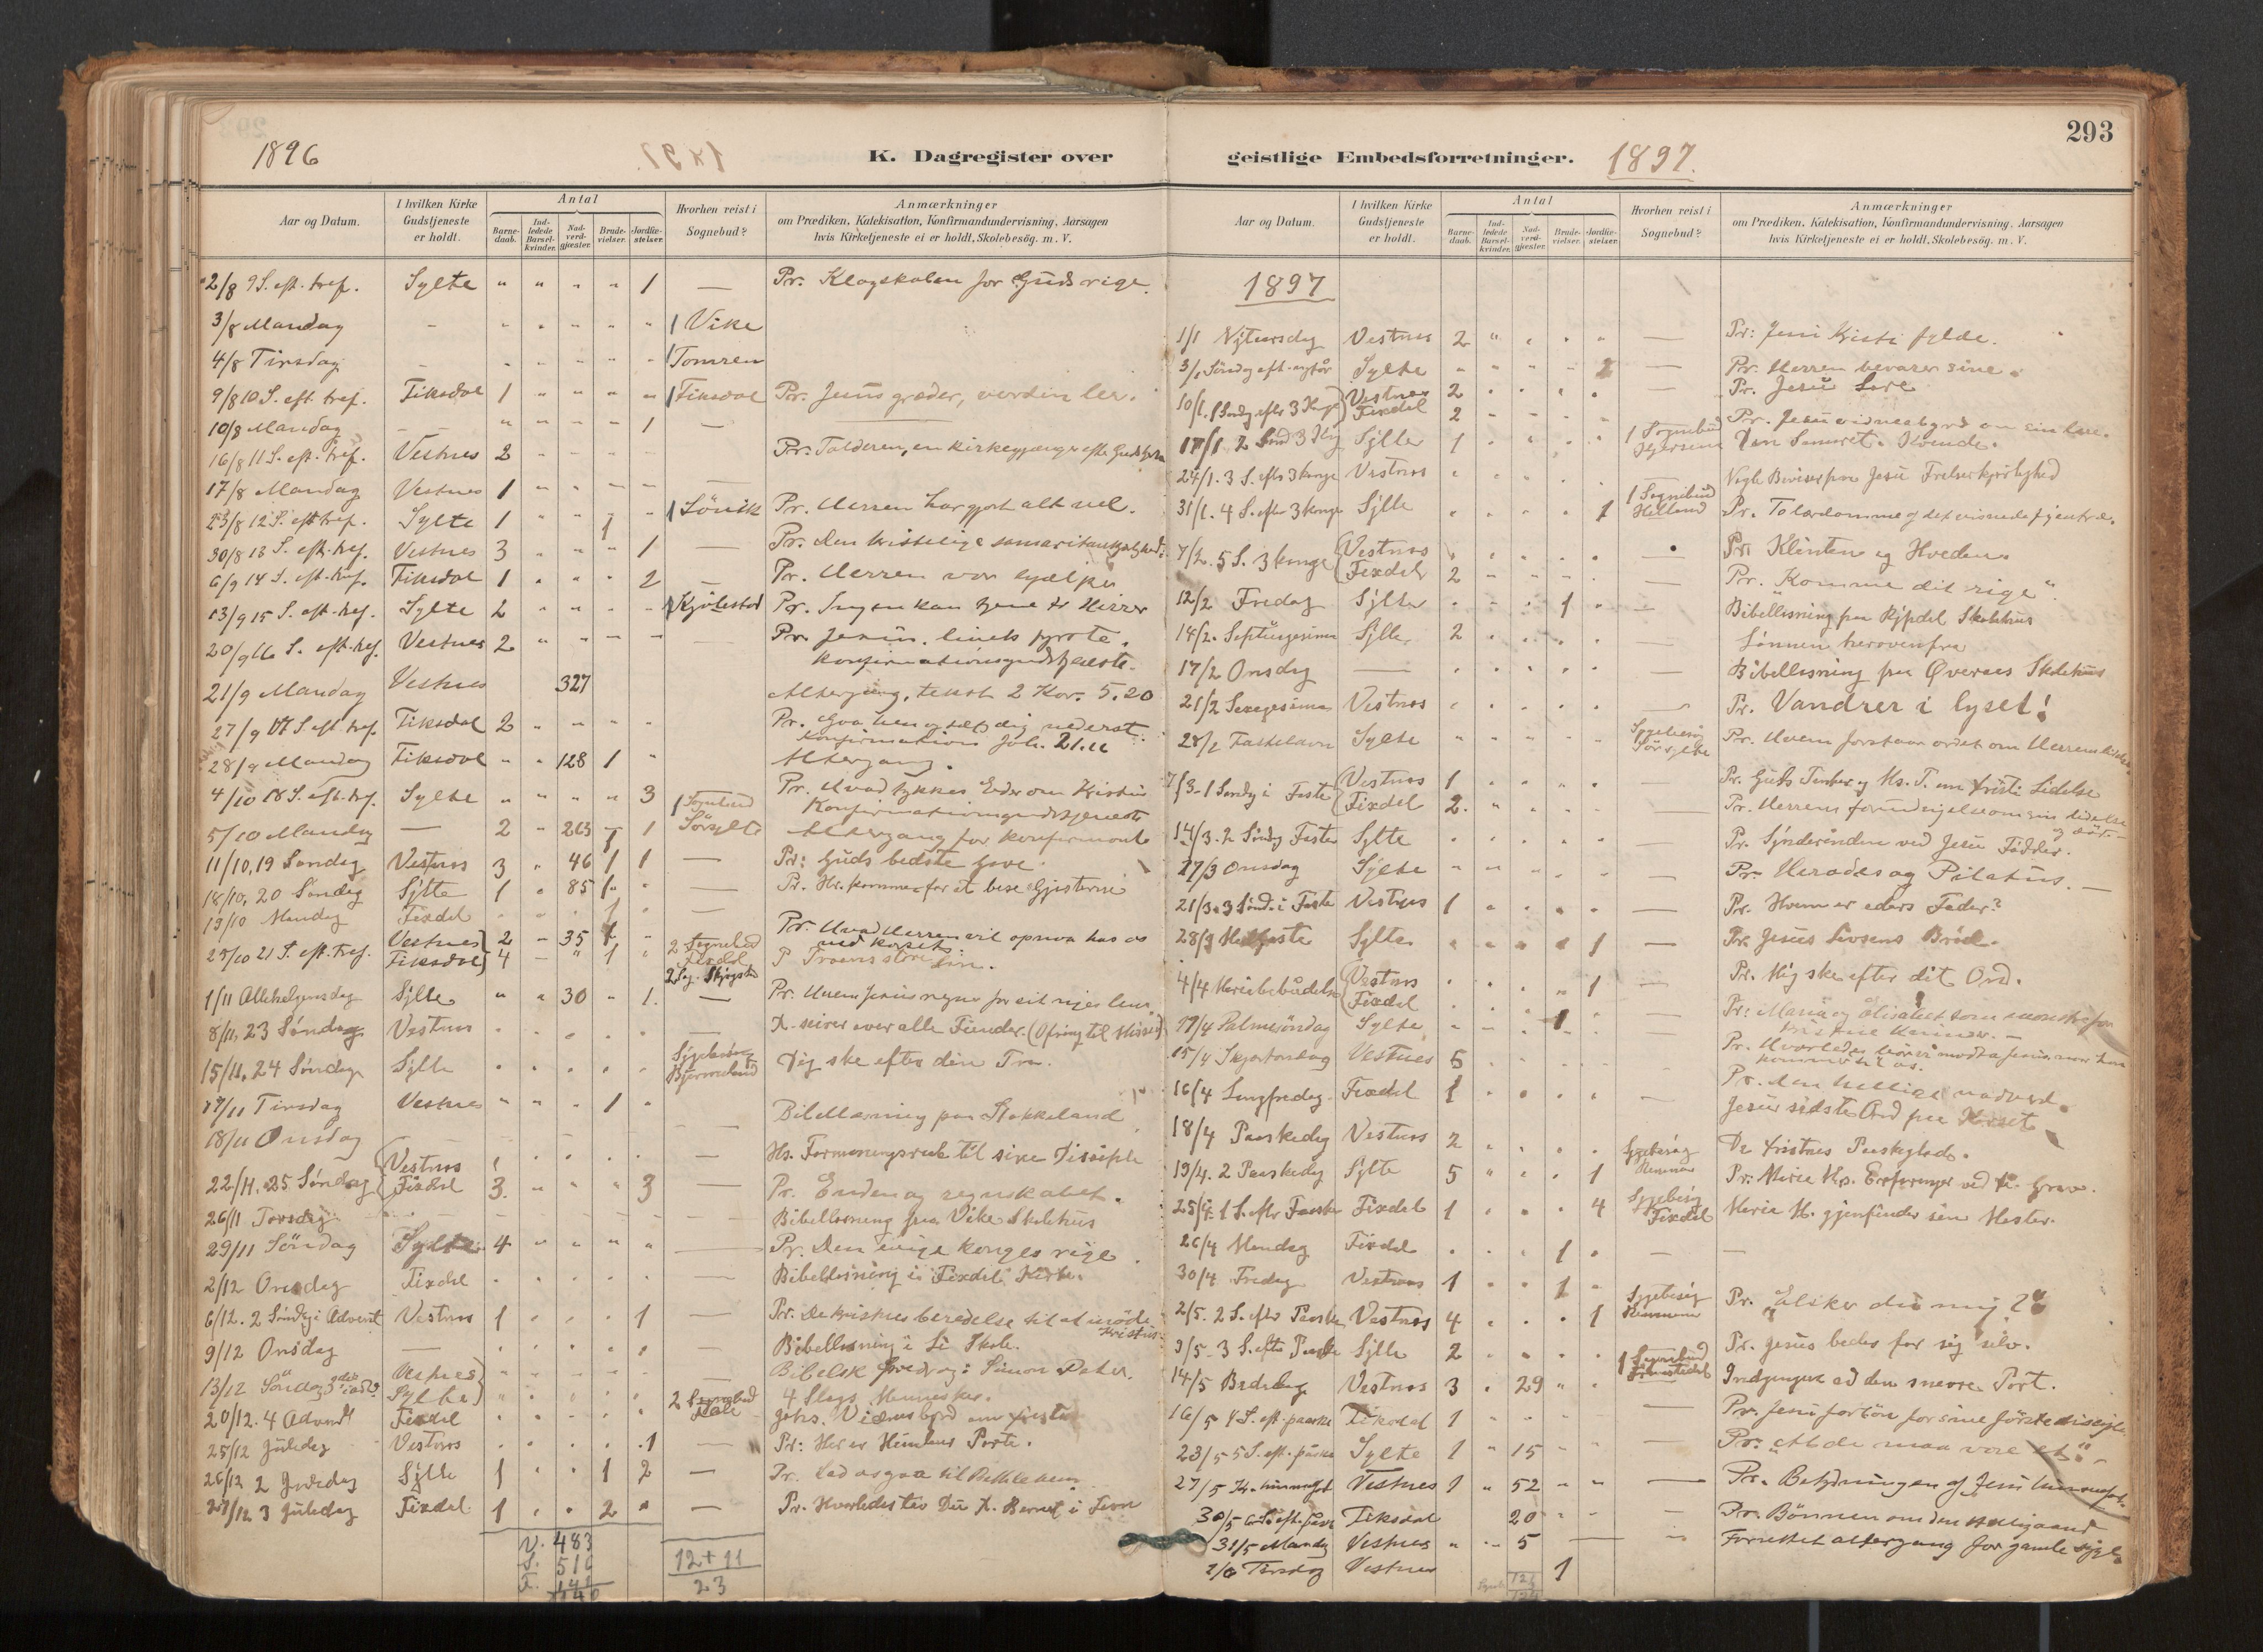 1896
K. Dagregister over
Aar og Datum.
I hvilken Kirke Gudstjeneste er holdt.
Antal
Barne-daab.
Ind-ledede Barsel-kvinder.
Nad-verd-gjester.
Brude-vielser.
Jordfæ-stelser.
Hvorhen reist i Sognebud?
Anmærkninger
om Prædiken, Katekisation, Konfirmandundervisning, Aarsagen
hvis Kirketjeneste ei er holdt, Skolebesög. m. V.
2/8 9 S. eft. tref. Sylte " " " " 1 — Pr. Klogskaben for Guds rige
3/8 Mandag - - " " " " 1 Vike
4/8 Tirsdag - - " " " " 1 Tomren
9/8 10 S. eft. tref. Fiksdal 1 " " " " 1 Fiksdal Pr. Jesus græder, verden ler.
10/8 Mandag — — " " " " 1 —
16/8 11 S. eft. tref. Vestnes 2 " - - - Pr. Tolderen, en kirkegjænger efter Guds
17/8 Mandag Vestnes 1 " - - - —
23/8 12 S. eft tref. Sylte 1 " " 1 " 1 Pr. Herren har gjort alt vel.
30/8 13 S. eft. tref. Vestnes 3 " " " 1 — Pr. Den kristelige
6/9 14 S. eft. tref. Fiksdal 1 " " " 2 — Pr. Herren vor hjælper
13/9 15 S. eft. tref. Sylte 2 " " " " Pr. Ingen kan tjene to Herrer
20/9 16 S. eft. tref. Vestnes 2 " " " " — Pr. Jesus. livets fyrste.
Konfirmationsgudstjeneste.
21/9 Mandag Vestnes 327 Altergang, tekst 2 Kor. 5.20
27/9 17 S. eft tref. Fiksdal 2 " " " " Pr. Gaa hen og sæt dig nederst.
Konfirmation Joh. 21.
28/9 Mandag Fiksdal " " 128 1 " Altergang.
4/10 18 S. eft. tref. Sylte " " " " 3 1 Sognebud Pr. Hvad tykkes Eder om Kristus
Konfirmationsgudstjeneste
5/10 Mandag — 2 " 263 1 1 Sørsylte Altergang for konfirmante
11/10, 19 Søndag Vestnes 3 " 46 1 1 — Pr: Guds bedste Gave.
18/10, 20 Søndag Sylte 1 " 85 1 " — Pr. Hr. kommer for at bese Gjesterne
19/10 Mandag Fixdal " " " 1 " —
25/10 21 S. eft. tref. Vestnes 2 - 35 " 2 Sognebud Pr. Hvad Herren vil opnaa hos os
ved korset.
Fiksdal 4 — " 1 " Fixdal P Troens store
1/11 Allehelgensdag Sylte " " 30 " 1. —
8/11, 23 Søndag Vestnes — X. seirer over alle Fiender. (Ofring til Missio)
15/11, 24 Søndag Sylte Dig ske efter din Tro.
17/11 Tirsdag Vestnes " " " 1 "
18/11 Onsdag Bibellæsning paa Stokkeland
22/11. 25 Søndag Vestnes — Hs. til sine Disciple
Fixdal 3. " " " 3 — Pr. Enden og regnskabet.
26/11 Torsdag Bibellæsning paa Vike Skolehus
29/11 Søndag Sylte 4 " " " " — Pr. Den evige konges rige
2/12 Onsdag Fixdal — Bibellæsning i Fixdal Kirke.
6/12. 2 Søndag i Advent Vestnes 1 " " " 1 — Pr. De kristnes beredelse til at møde
Kristus
9/12 Onsdag — Bibellæsning i Li Skole.
13/12 Søndag 3die i adv. Vestnes — Bibelsk foredrag: Simon Peter.
Sylte 4 Slags Mennesker.
20/12. 4 Advent Fixdal 2 Sognebud Johs. Vidnesbyrd om Kristus
25/12 Juledag Vestnes 1 — Pr: Her er Himlens Porte.
26/12 2 Juledag Sylte 1 " " 1 2 — Pr. Lad os gaa til Bethlehem
27/12 3 Juledag Fixdal 1 " " 2 " — Pr. Hvorledes
V. 483
S.
F.
12 + 11
23
293
geistlige Embedsforretninger. 1897.
Aar og Datum.
I hvilken Kirke Gudstjeneste er holdt.
Antal
Barne-daab.
Ind-ledede Barsel-kvinder.
Nad-verd-gjester.
Brude-vielser.
Jordfæ-stelser.
Hvorhen reist i Sognebud?
Anmærkninger
om Prædiken, Katekisation, Konfirmandundervisning, Aarsagen
hvis Kirketjeneste ei er holdt, Skolebesög. m. V.
1897
1/1 Nytaarsdag Vestnes 2 " " " " — Pr: Jesu Kristi fylde.
3/1 Søndag eft. nytår Sylte " " " " 2 — Pr. Herren bevarer sine.
10/1. 1 Søndag efter 3 Konge Vestnes 2 — Pr. Jesu Lære
Fixdal 2 Pr. Jesu vidnesbyrd om sin lære.
17/1 2 Sønd 3 Kg Sylte 1 1 Sognebud Den Samarit. Kvinde.
24/1. 3 S. efter 3 konge Vestnes Nogle Beviser paa Jesu Frelserkjærlighed
31/1. 4 S. efter 3 konge Sylte 1 1 Sognebud Helland Pr. To lærdomme af det visnede figentræ.
7/2. 5 S. 3 konge Vestnes Pr. Klinten og Hveden
Fixdal 2 — Pr. "Komme dit rige".
12/2 Fredag Sylte 1 — Bibellæsning paa Skolehus
14/2. Septuagesima Sylte 2 — Sønnen herovenfra
17/2 Onsdag — — Bibellæsning paa Øveraas Skolehus
21/2 Sexagesima Vestnes — Pr. Vandrer i lyset!
28/2 Fastelavn Sylte Sygebesøg Sørsylte Pr. Hvem forstaar ordet om Herrens
7/3 - 1 Søndag i Faste Vestnes 1 — Pr. Guds Tanker og Ms. T. om Kristi Lidelse
Fixdal 2. Pr. Herrens forudsigelse om sin lidelse
og død.
14/3. 2 Søndag Faste Sylte — Pr. Synderinden ved Jesu Fødder.
17/3 Onsdag Sylte — Pr. Herodes og Pilatus. —
21/3. 3 Sønd. i Faste Vestnes 1 — Pr. Hvem er eders Fader?
28/3 Midfaste Sylte 1 — Pr. Jesus Livsens Brød.
4/4 Mariæ bebudelse Vestnes 1 — Pr. Mig ske efter dit Ord.
Fixdal — Pr: Maria og Elisabet som mønster for
kristne kvinder. —
11/4 Palmesøndag Sylte 1 Pr. Hvorledes bør vi modta Jesus, naar han
kommer til os.
15/4 Skjærtorsdag Vestnes 5 Pr. Den hellige nadverd.
16/4 Langfredag Fixdal 1 — Jesu sidste Ord paa Korset
18/4 Paaskedag Vestnes 2 Sygebesøg De kristnes Paaskeglæde.
19/4. 2 Paaskedag Sylte 5 1 Pr. Maria Ms. Erfaringer ved Hs. Grav.
25/4. 1 S. efter Paaske Fixdal 1 4 Sygebesøg Fixdal Maria M. gjenfinder sin Mester.
26/4 Mandag Fixdal 1 — —
30/4 Fredag Vestnes 1 1
2/5. 2 S. efter Paaske Vestnes 4 1 Sygebesøg Pr. "Elsker du mig?"
9/5 - 3 S. efter Paaske Sylte 2 Pr. Jesus beder for sig selv.
14/5 Bededag Vestnes 3 " 29 1 Sognebud Indgangen ad den snevre Port.
16/5 4 S. eft. paaske Fiksdal 1 — Pr. Jesu forbøn for sine første disciple
23/5 5 S. eft. paaske Sylte 1 " 15 — Pr. "At de maa være et".
27/5 Kr. himmelf. Vestnes 1 " 52 — Pr. Betydningen af Jesu himmelf.
30/5 6 S. eft. paas Fiksdal 20 — Pr. Bønnen om den Helligaand
31/5 Mandag Vestnes 5 Forrettet altergang for gamle syge
1/6 Tirsdag Vestnes 1